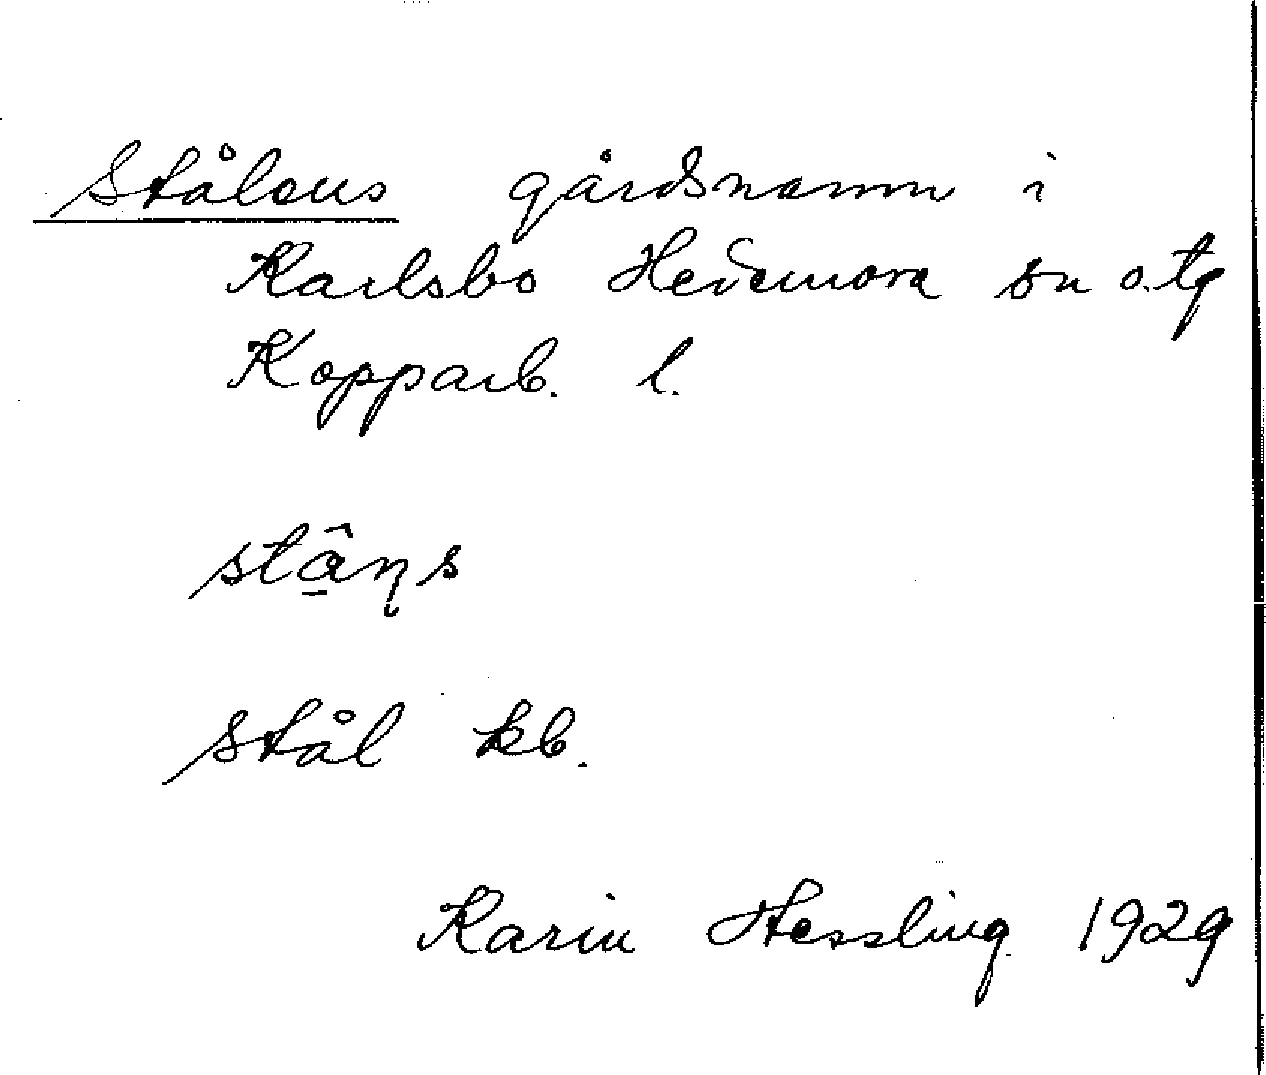 Ståls gårdsnamn i
Karlsbo Hedemora sn o. tg
Kopparb. l.
stâ̱ƞs
Stål kb.
Karin Hessling 1929